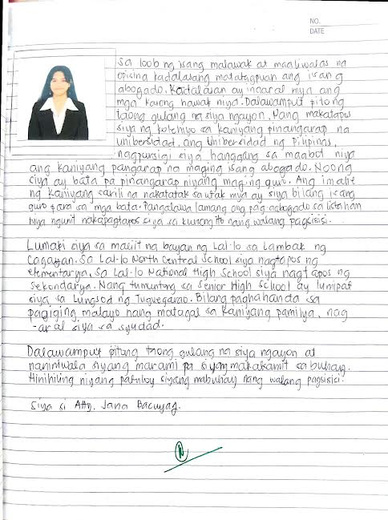 NO.
DATE
Sa loob ng isang malawak at maaliwalas na
opisina kadalatang matatagpuan ang isang
abogado. Kadalasan ay inaaral niya ang
mga kasong hawak niya. Dalawampu't pitong
taong gulang na siya ngayon. Nang makatapos
siya ng kolehiyo sa kaniyang pinangarap na
unibersidad, ang Unibersidad ng Pilipinas,
nagpursigi siya hanggang sa maabot niya
ang kaniyang pangarap na maging isang abogado. Noong
siya ay bata pa pinangarap niyang maging guro. Ang imahe
ng kaniyang sarili na nakatatak sa utak niya ay siya bilang isang
guro sa mga bata. Pangalawa lamang ang pag aabogado sa listahan
niya ngunit nakapagtapos siya sa kursong ito nang walang pagsisisi.
Lumaki siya sa maliit ng bayan ng Lal-lo sa Lambak ng
Cagayan. Sa Lal-lo North Central School siya nagtapos ng
elementarya. Sa Lal-lo National High School siya nagtapos ng
Sekondarya. Nang tumuntong sa Senior High School ay lumipat
siya sa lungsod ng Tuguegarao. Bilang paghahanda sa
pagiging malayo nang matagal sa kaniyang pamilya, nag
-aral siya sa syudad.
Dalawampu't pitong taong gulang na siya ngayon at
naniniwala siyang marami pa siyang makakamit sa buhay.
Hinihiling niyang patuloy siyang mabuhay nang walang pagsisisi.
Siya si Atty. Jana Bacuyag.